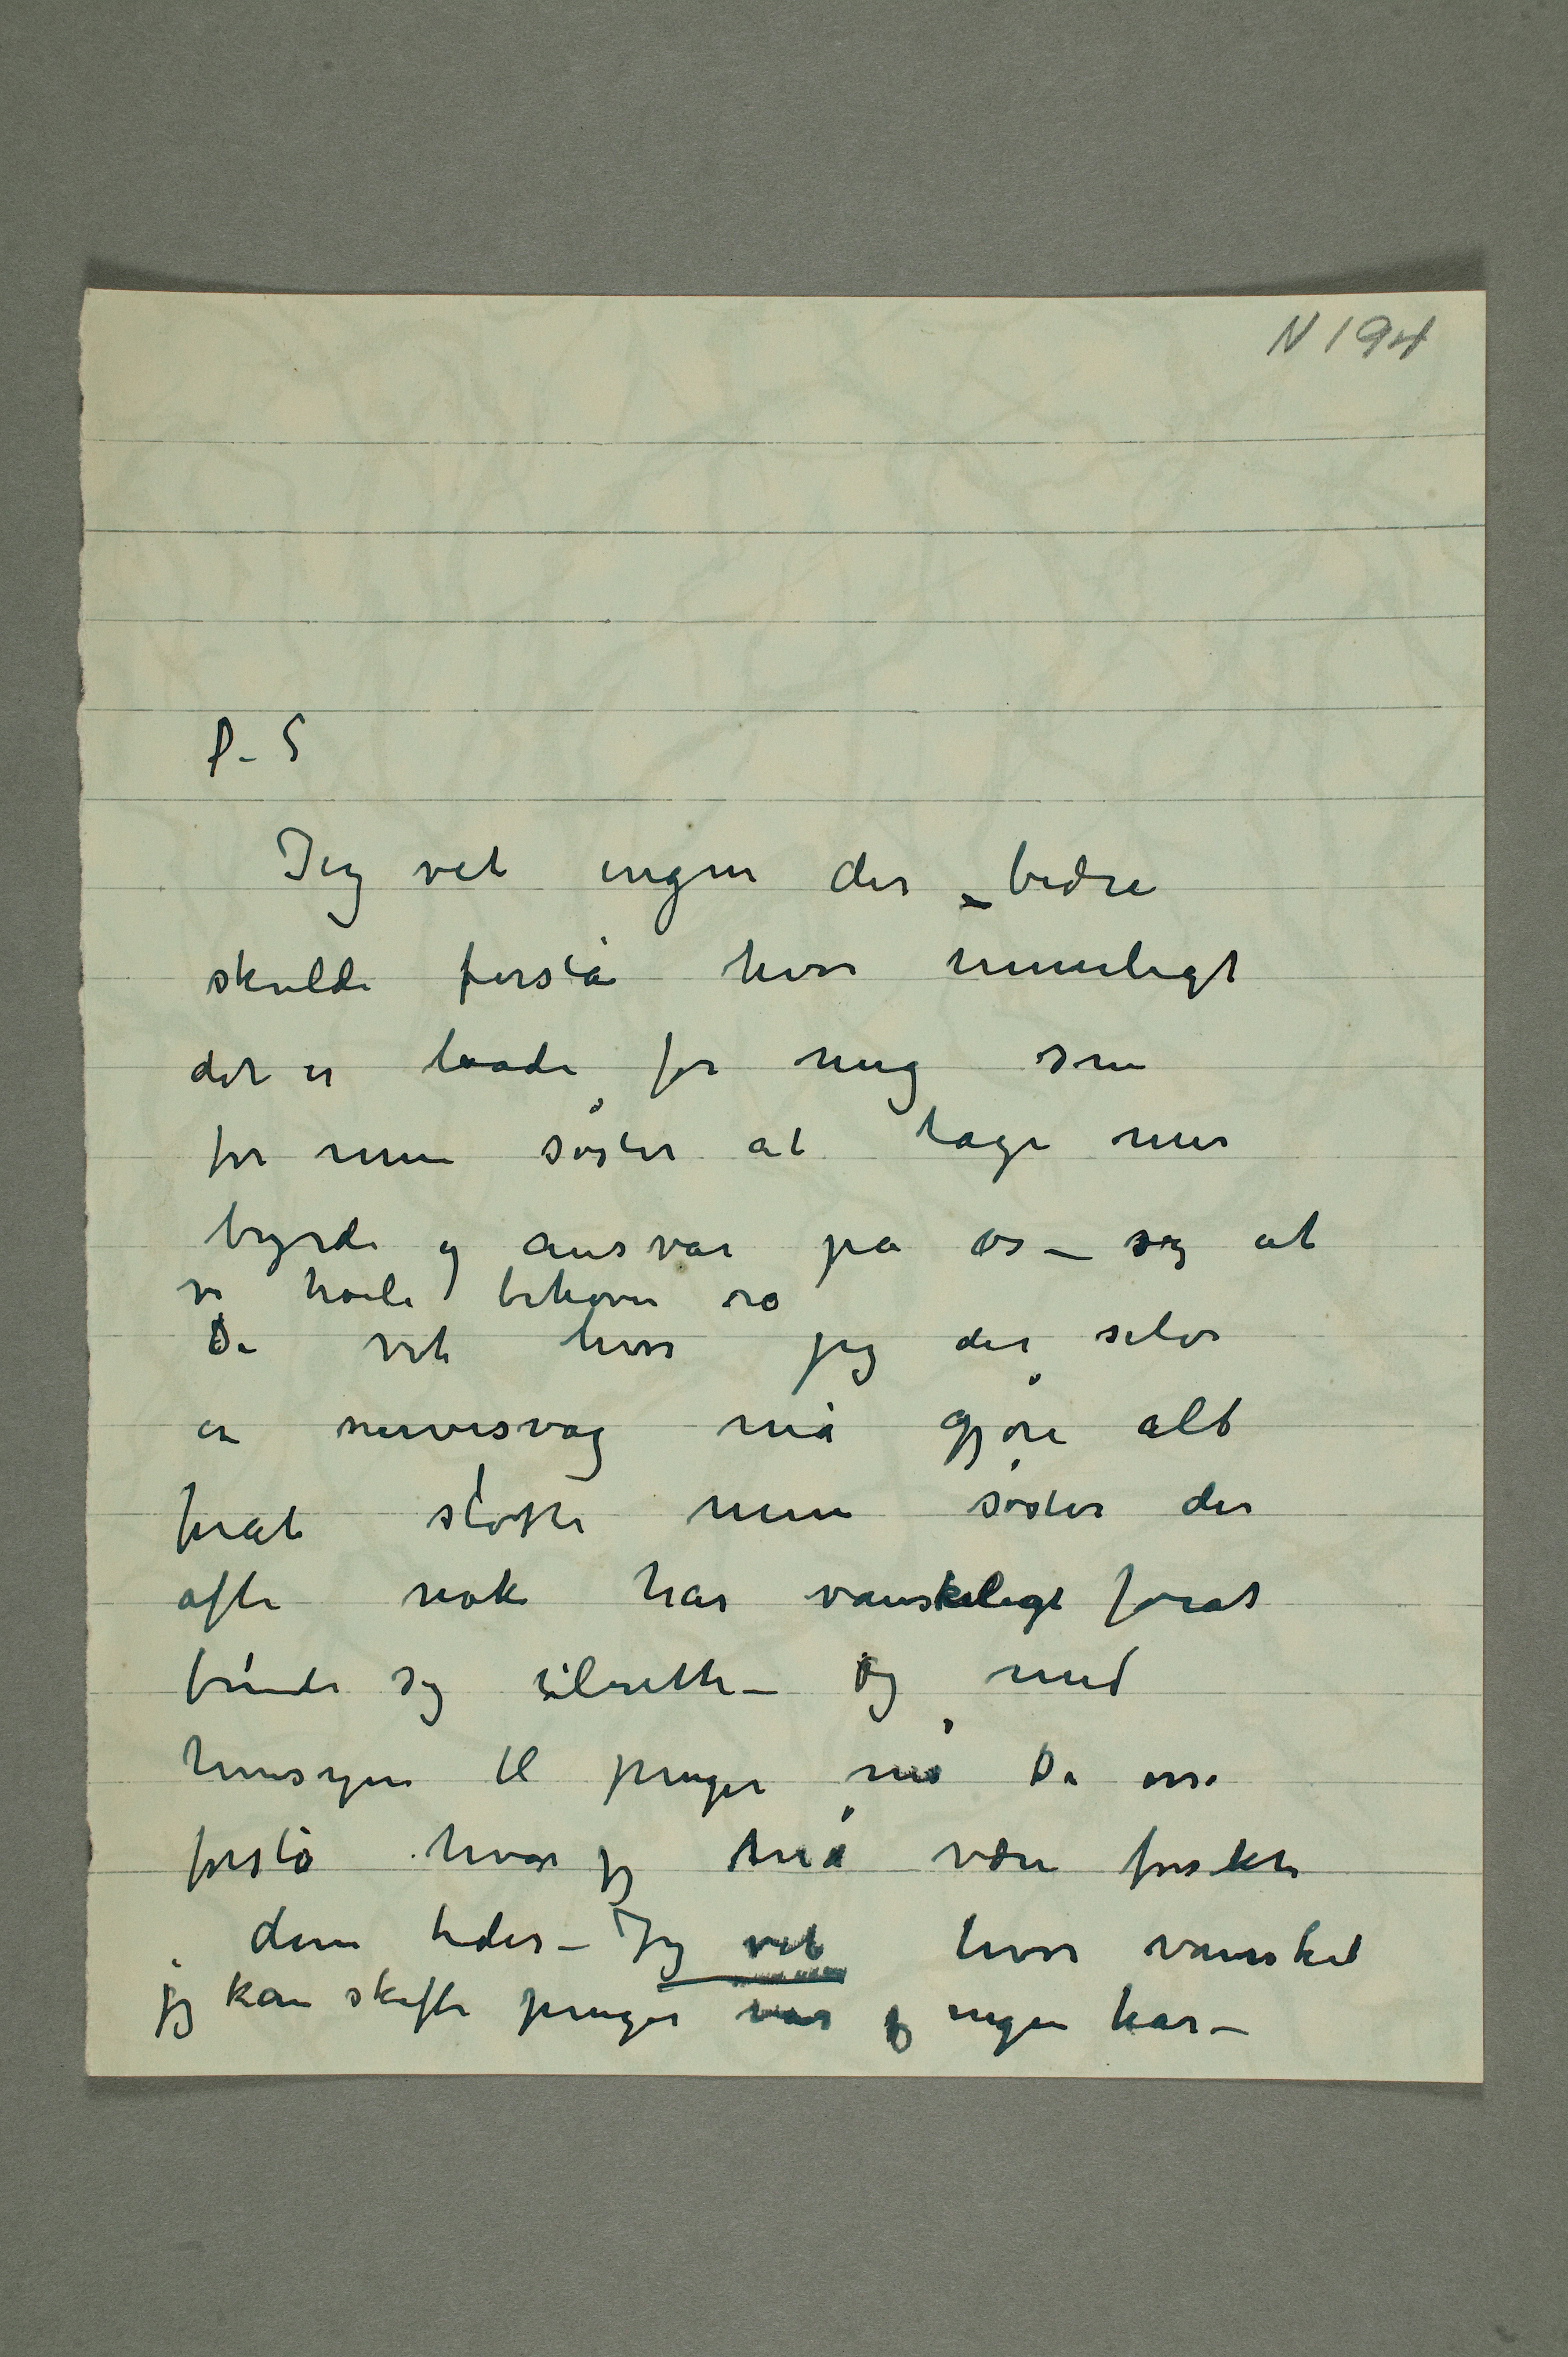 N 194
P. S
Jeg vet ingen der – bedre
skulde forstå hvor umuligt
det er baade for mig som
for min søster at tage mer
byrde og ansvar på os – og at
vi hvile behøver
De vet hvor jeg der selv
er nervesvag må gjøre alt
forat støtte min søster der
ofte nok har vanskeligt forat
finde sig tilrette – Og med
hensyn til penger må De
forstå hvor jg må være forsikti
denne tider – Jg vet hvor vanskel
jg kan skaffe penger når jg ingen har –